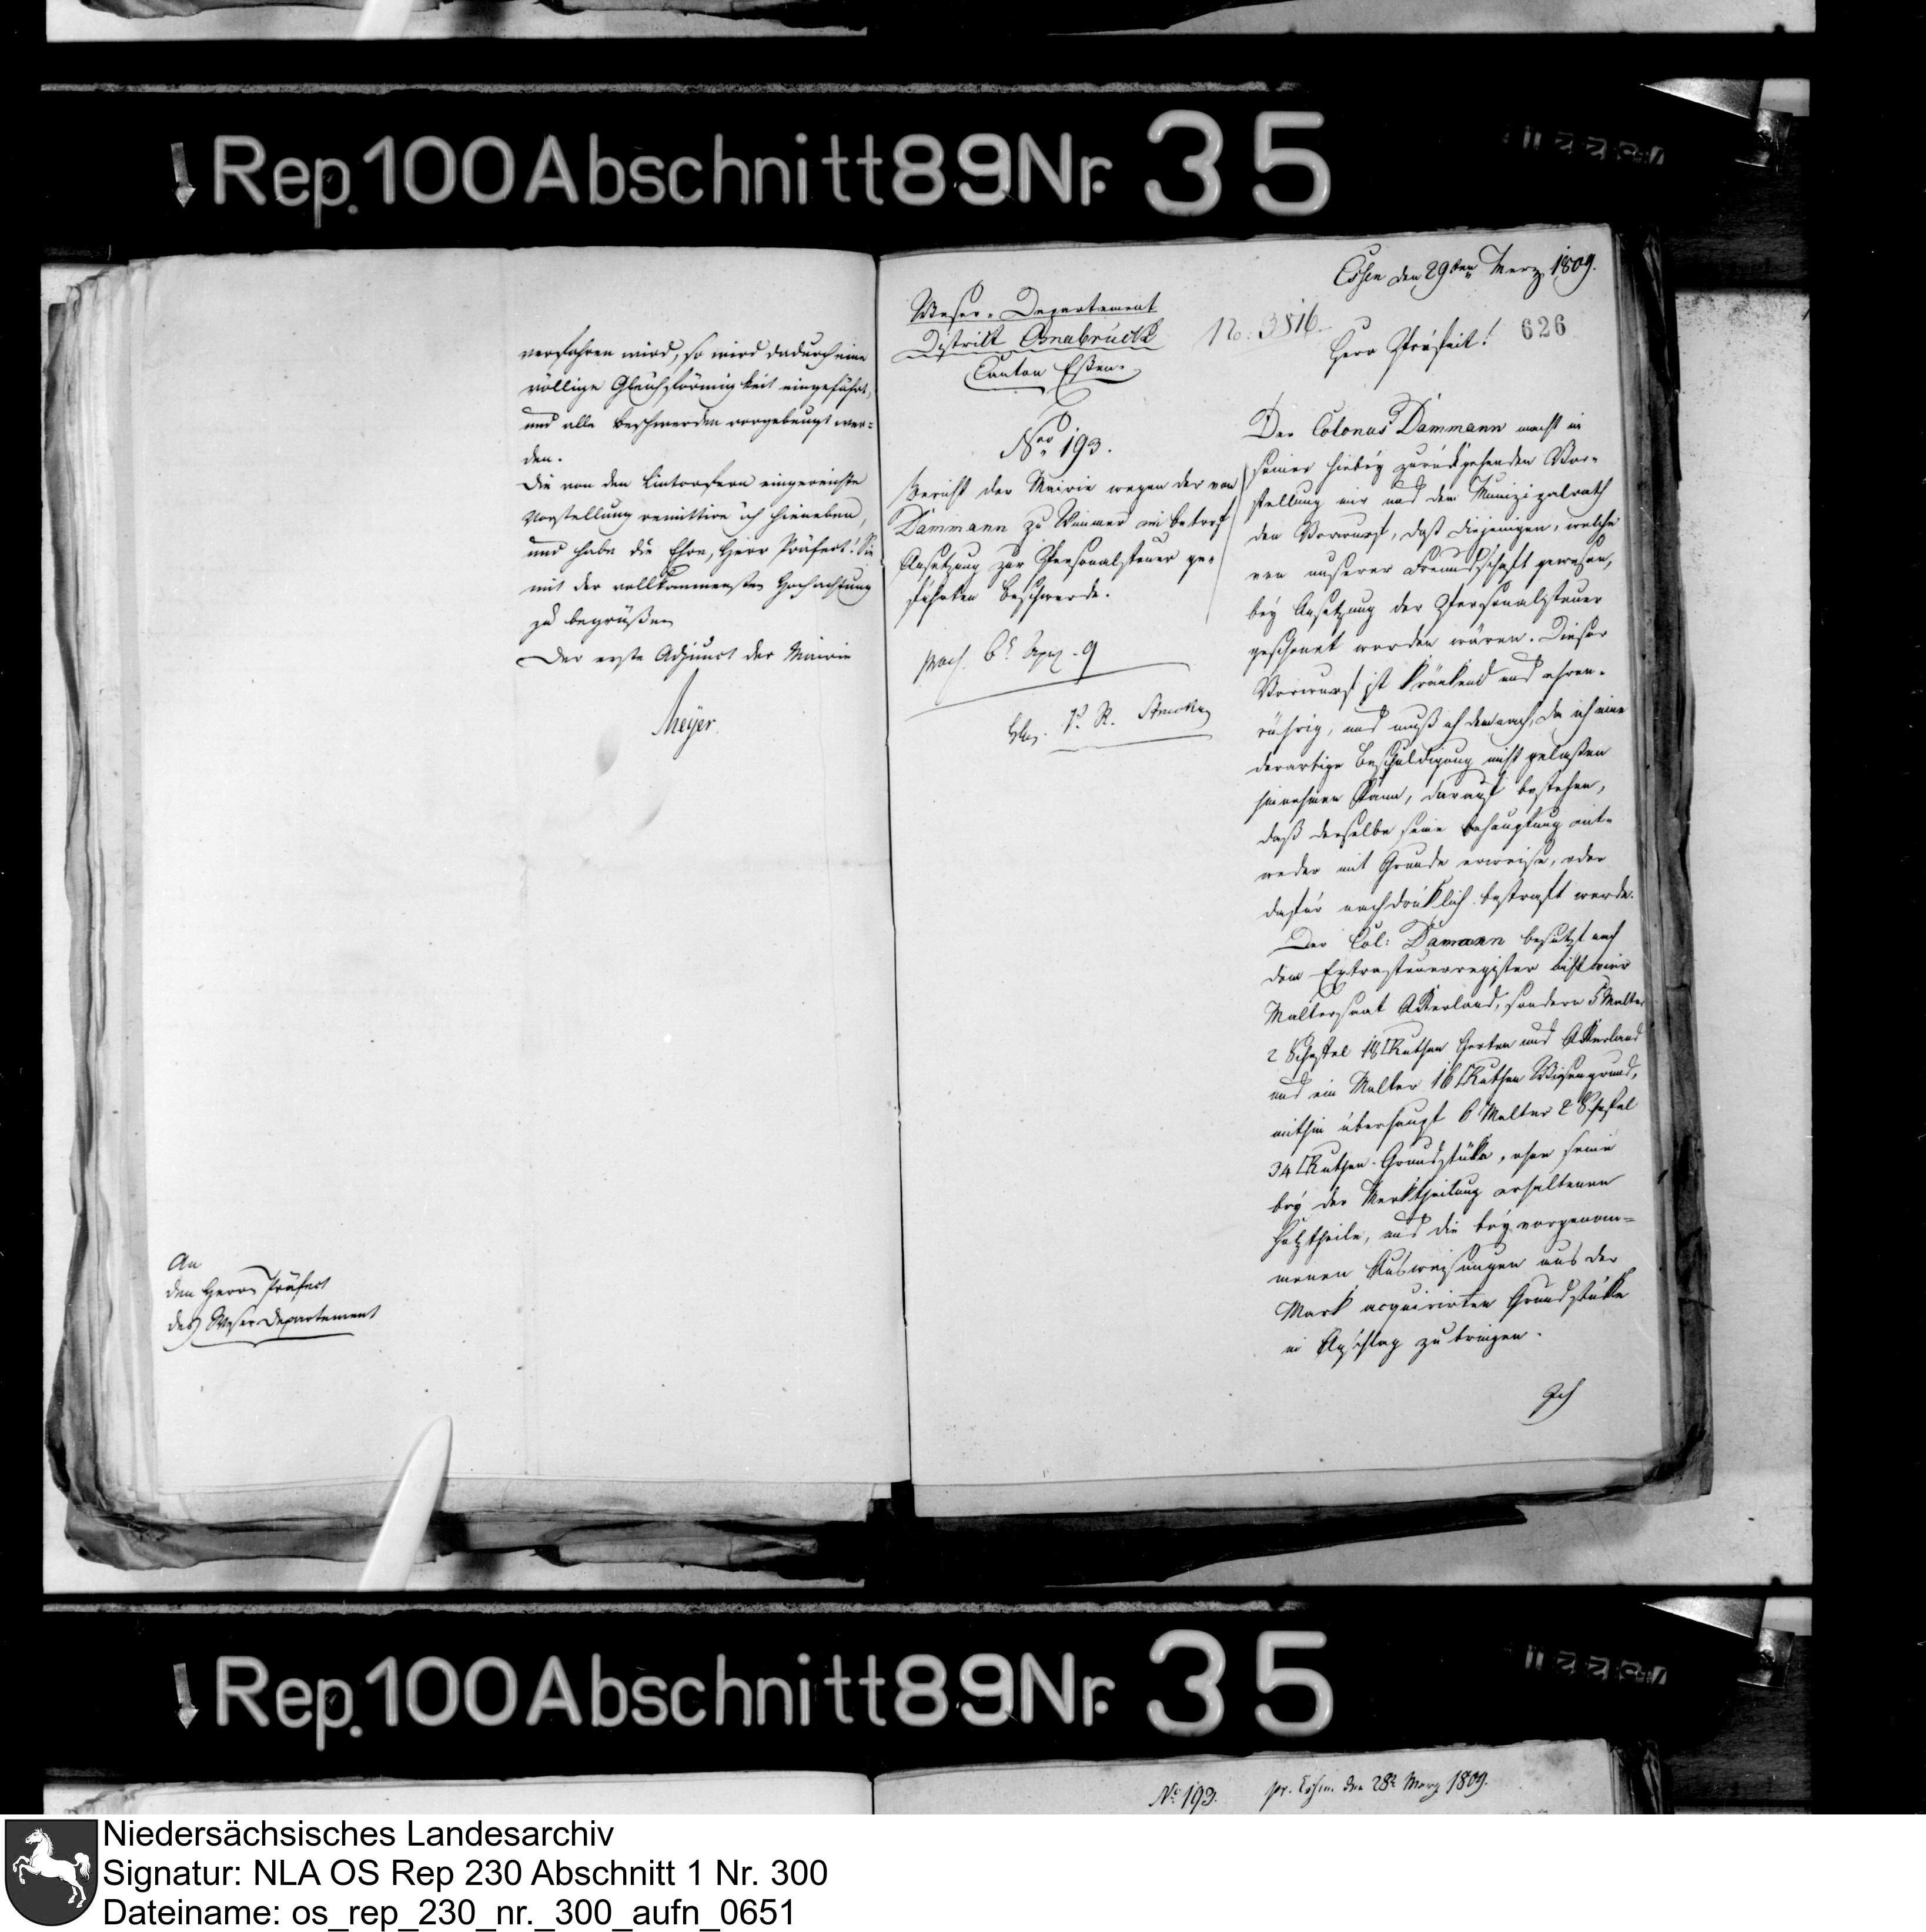 Rep. 100 Abschnitt 89 Nr. 35
verfahren wird, so wird dadurch eine
völlige Gleichförmigkeit eingeführt,
und alle Beschwerden vorgebeugt wer=
den.
Die von den Lintorfern eingereichte
Vorstellung remittire ich hieneben,
und habe die Ehre, Herr Präfect! Sie
mit der vollkommensten Hochachtung
zu begrüßen
Der erste Adjunct der Mairie
Meyer.
An
den Herrn Präfect
des Weser Departement
Essen den 29ten Merz 1809.
Weser-Departement
District Osnabrück
Canton Eßen.
No. 3816
626
Herr Präfect!
Nro 193.
Bericht der Mairie wegen der von
Dammann zu Wimmer in betref
Ansetzung zur Personalsteuer ge-
führten Beschwerde.
Der Colonus Dammann macht in
seiner hiebey zurückgehenden Vor-
stellung mir und dem Munizipalrath
den Vorwurf, daß diejenigen, welche
von unserer Freundschaft gewesen,
bey Ansetzung der Personalsteuer
geschonet worden wären. Dieser
Vorwurf ist kränkend und ehren-
rührig, und muß ich demnach, da ich eine
derartige Beschuldigung nicht gelaßen
hinnehmen kann, darauf bestehen,
daß derselbe seine Behauptung ent-
weder mit Grunde erweise, oder
dafür nachdrücklich bestraft werde.
Der Col: Damann besitzt nach
dem Extrasteuerregister nicht vier
Maltersaat Ackerland, sondern 5 Malter
2 Scheffel 18 Ruthen Garten und Ackerland
und ein Malter 16 Ruthen Wiesengrund,
mithin überhaupt 6 Malter 2 Scheffel
34 Ruthen Grundstücke, ohne seine
bey der Marktheilung erhaltenen
Holztheile, und die bey vorgenom=
menen Ausweisungen aus der
Mark acquirirten Grundstücke
in Anschlag zu bringen.
Ich
Rep. 100 Abschnitt 89 Nr. 35
No 193. pr. Essen den 28t Merz 1809.
Niedersächsisches Landesarchiv
Signatur: NLA OS Rep 230 Abschnitt 1 Nr. 300
Dateiname: os_rep_230_nr._300_aufn_0651